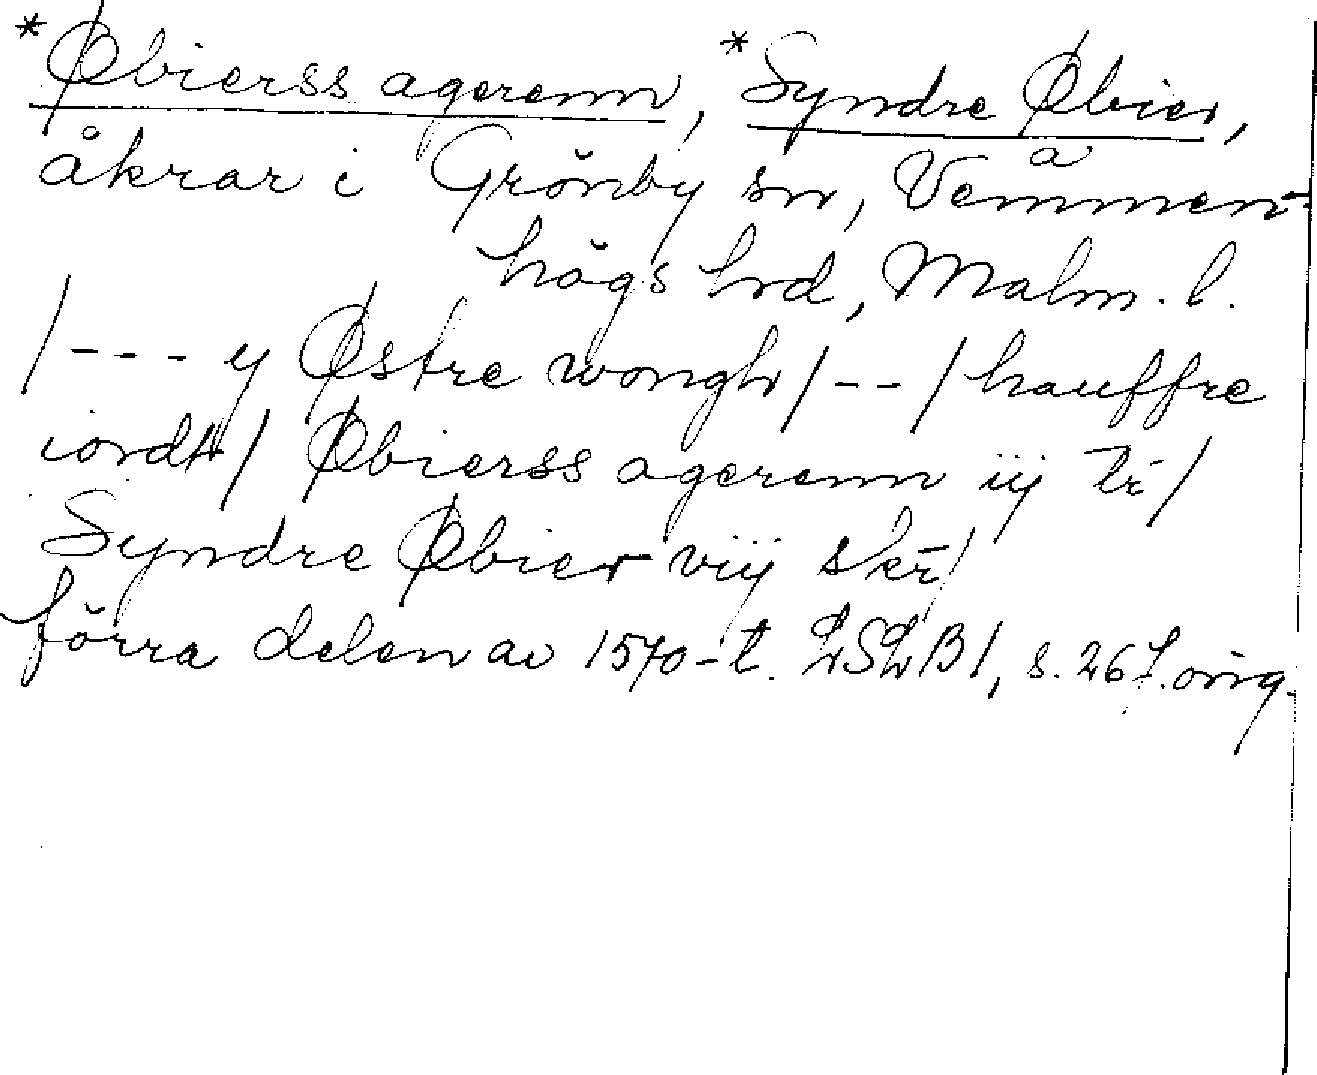 *Øbierss agerenn, *Syndre Øbier,
åkrar i Grönby sn, Vemmen-
högs hd, Malm. l.
/--- y Østre wongh/--/hauffre
iordt/ Øbierss agerenn iij tr̄/
Syndre Øbier viij skr̄/
förra delen av 1570-t. LSLB1, s. 267. orig.